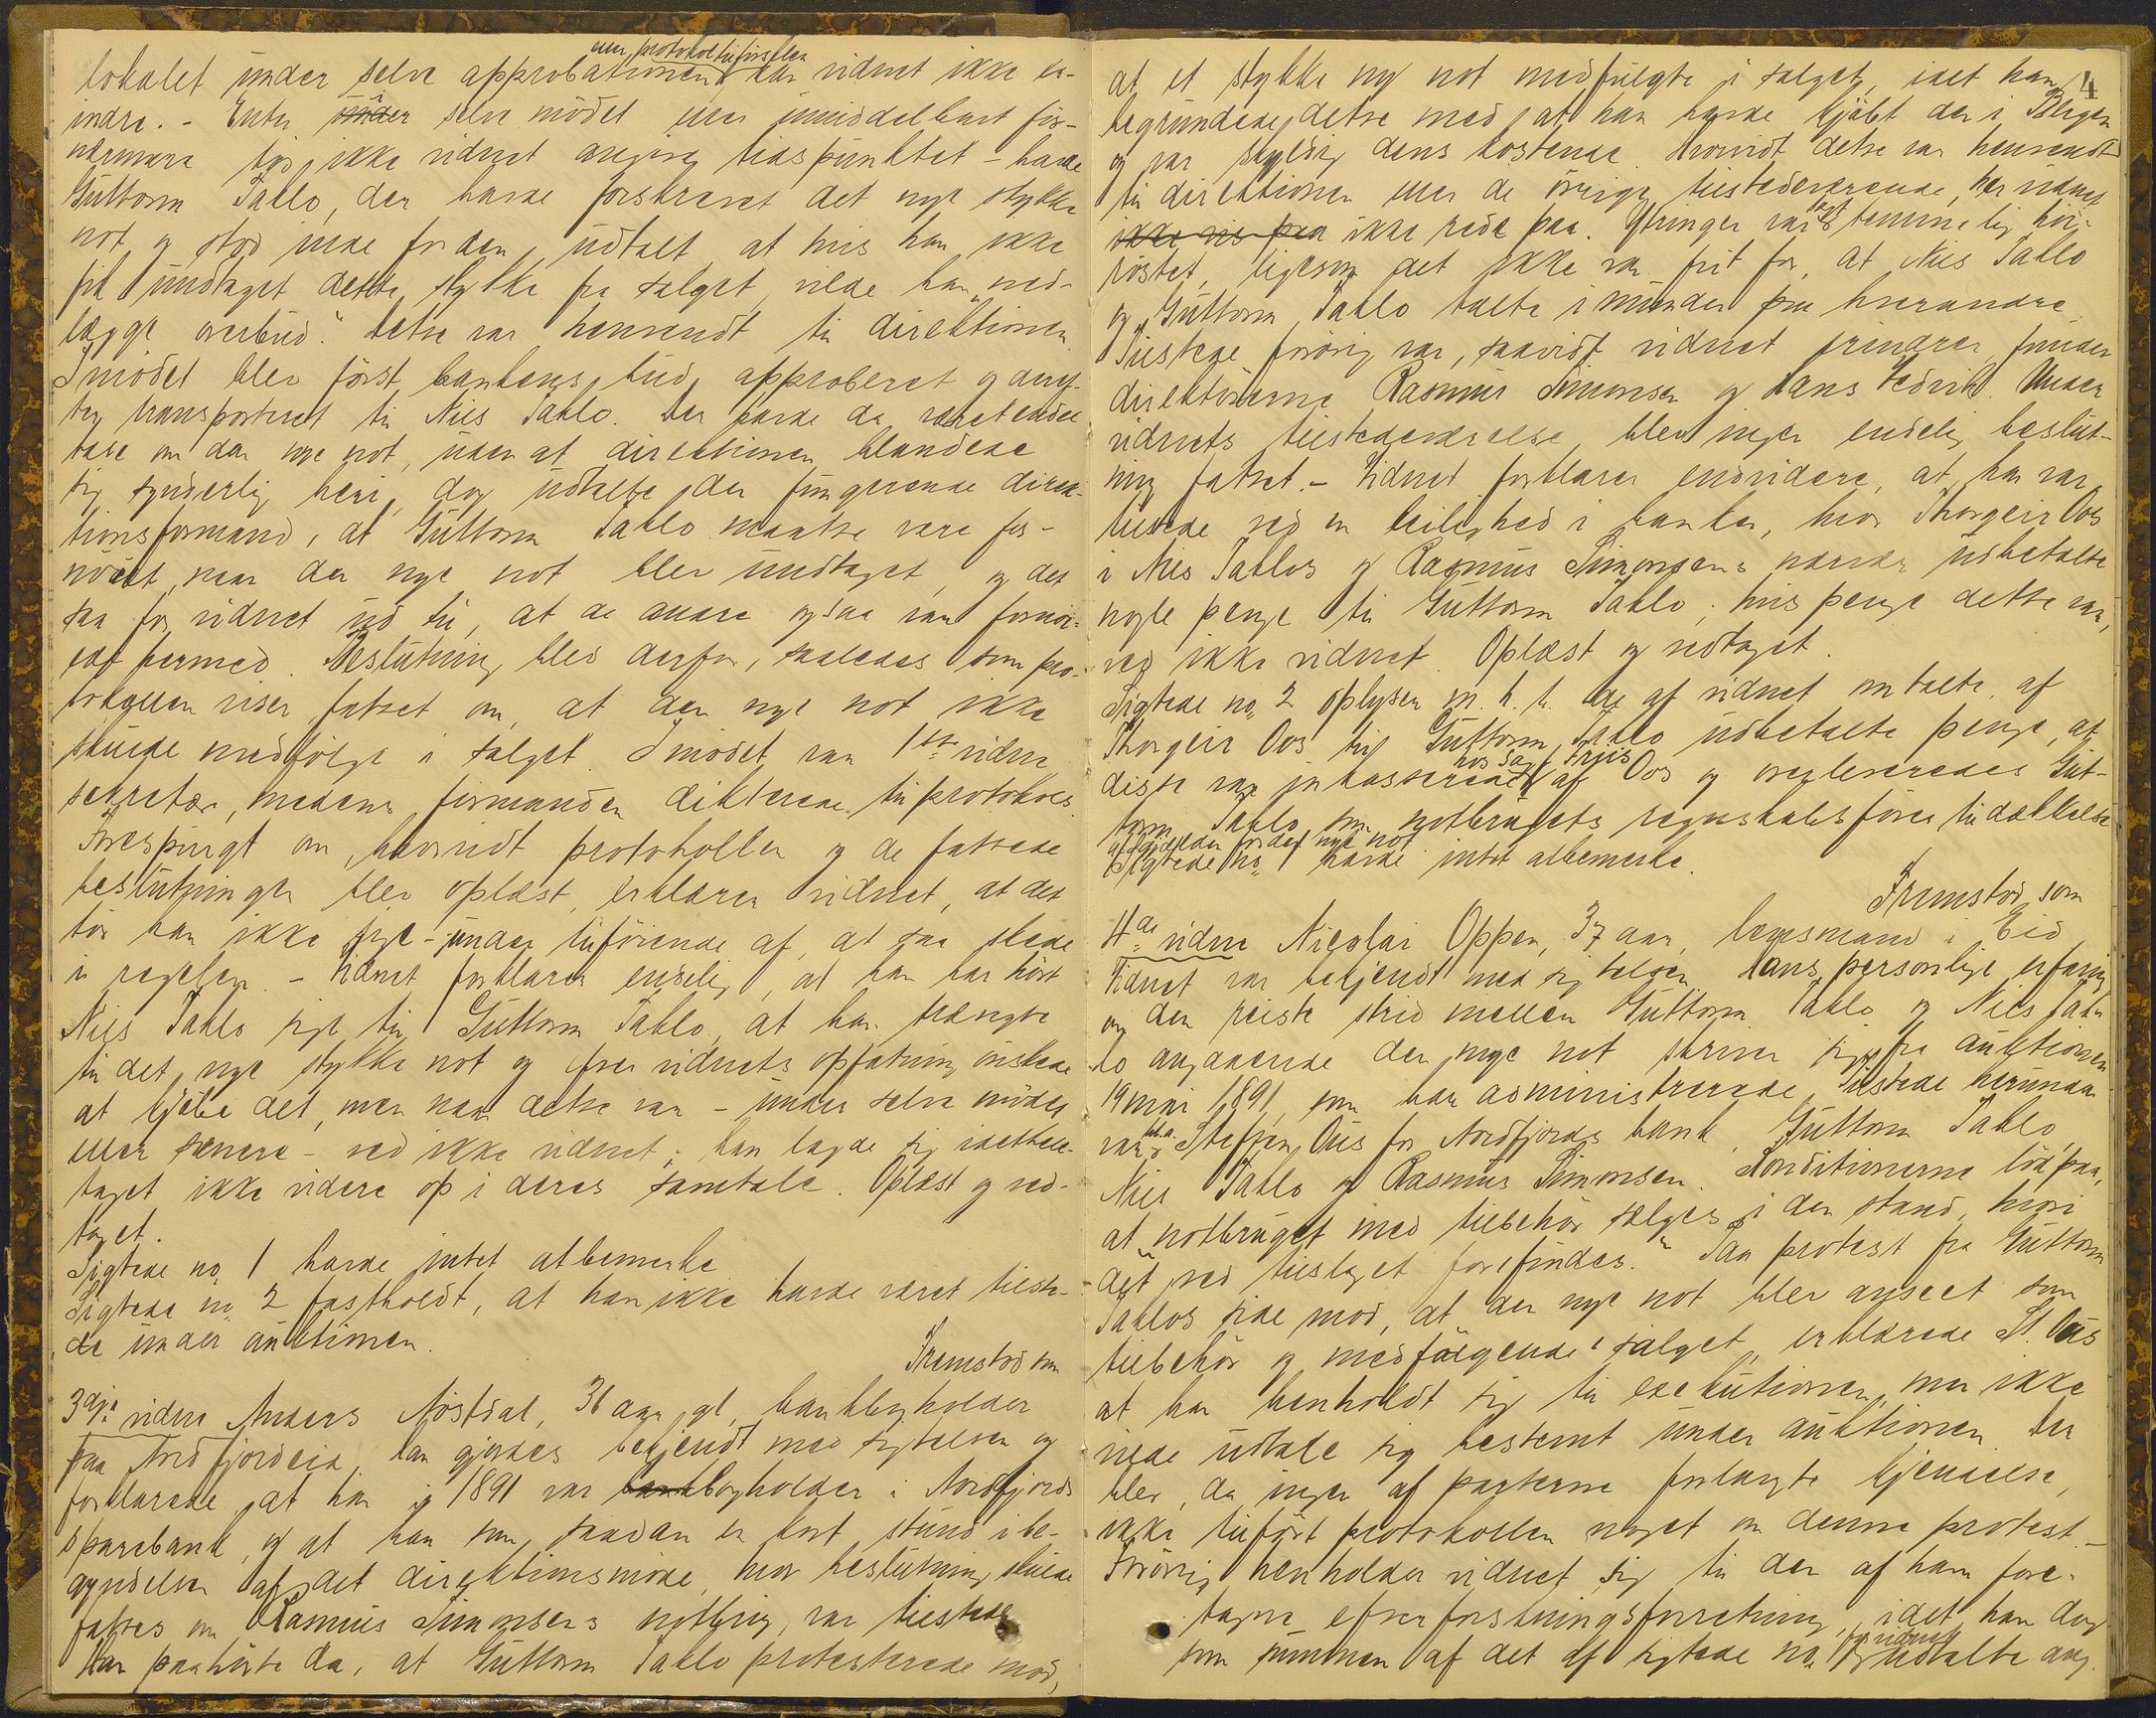 eller protokoltilførslen
lokalet under selve approbationen kan vidnet ikke er-
indre. - Enten under i selve mödet eller umiddelbart for-
nærmere tør ikke vidnet angive tidspunktet - havde
Guttorm Taklo, der havde forskrevet det nye stykke
not og stod inde for den, udtalt, at hvis han ikke
fik undtaget dette stykke fra salget, vilde han „ned-
lægge overbud". Dette var henvendt til direktionen.
I mödet blev först bankens bud approberet og deref-
ter transporteret til Nils Taklo. Der havde da været endel
tale om den nye not, uden at direktionen blandede
sig synderlig heri, dog udtalte den fungerende direk-
tionsformand, at Guttorm Taklo maatte være for-
nöiet, naar den nye not blev undtaget, og det
saa for vidnet ud til, at de andre ogsaa var fornöi-
et hermed. Beslutning blev derfor, saaledes som pro-
tokollen viser, fattet om, at den nye not ikke
skulde medfölge i salget. I mödet var 1ste vidne
sekretær, medens formanden dikterede til protokols.
Forespurgt om, hvorvidt protokollen og de fattede
beslutninger blev oplæst, erklærer vidnet, at det
tör han ikke sige - under tilföiende af, at saa skede
i regelen. - Vidnet forklarer endelig, at han har hört
Nils Taklo sige til Guttorm Taklo, at han trængte
til det nye stykke not og efter vidnets opfatning önskede
at kjöbe det, men naar dette var - under selve mödet
eller senere - ved ikke vidnet; han lagde sig idethele-
taget ikke videre op i deres samtale. Oplæst og ved-
taget.
Sigtede no. 1 havde intet at bemerke
Sigtede no. 2 fastholdt, at han ikke havde været tilste-
de under auktionen.
Fremstod som
3dje vidne Anders Nöstdal, 36 aar gl, bankbogholder
paa Nordfjordeid. Han gjordes bekjendt med sigtelsen og
forklarede, at han i 1891 var bankbogholder i Nordfjords
sparebank, og at han som saadan en kort stund i be-
gyndelsen af det direktionsmöde, hvor beslutning skulde
fattes om Rasmus Simonsens notbrug, var tilstede
Han paahörte da, at Guttorm Taklo protesterede mod,
4
at et stykke ny not medfulgte i salget, idet han
begrundede dette med, at han havde kjöbt den i Bergen
og var skyldig dens kostende. Hvorvidt dette var henvendt
til direktionen eller de övrige tilstedeværende, har vidnet
ikke vis paa ikke rede paa. Ytringen var sagt temmelig höi-
röstet, ligesom det ikke var frit for, at Nils Taklo
og Guttorm Taklo talte i munden paa hverandre.
Tilstede forövrig var, saavidt vidnet erindrer, funder
direktörerne Rasmus Simonsen og Hans Hedrik. Under
vidnets tilstedeværelse blev ingen endelig beslut-
ning fattet. - Vidnet forklarer endvidere, at han var
tilstede ved en leilighed i banken, hvor Thorgeir Oos
i Nils Taklos og Rasmus Simonsens nærvær udbetalte
nogle penge til Guttorm Taklo; hvis penge dette var,
ved ikke vidnet. Oplæst og vedtaget.
Sigtede no. 2 oplyser m. h. t. de af vidnet omtalte, af
Thorgeir Oos til Guttorm Taklo udbetalte penge, at
hos Sagf. Friis
disse var inkasserede af Oos og overleveredes Gut-
torm Taklo som notbrugets regnskabsförer til dækkelse
af gjælden for det nye not
Sigtede no. 1 havde intet at bemerke.
Fremstod som
4de vidne Nicolai Oppen, 37 aar, lensmand i Eid
Vidnet var bekjendt med sigtelsen. Hans personlige erfaring
om den reiste strid mellem Guttorm Taklo og Nils Tak-
lo angaaende den nye not skriver sig fra auktionen
19 mai 1891, som han administrerede. Tilstede herunder
var bl.a. Steffen Aas for Nordfjords bank, Guttorm Taklo,
Nils Taklo og Rasmus Simonsen. Konditionerne löd paa,
at „notbruget med tilbehör sælges i den stand, hvori
det ved tilslaget forefindes." Paa protest fra Guttorm
Taklos side mod, at den nye not blev anseet som
tilbehör og medfölgende i salget, erklærede St. Aas
at han henholdt sig til exekutionen, men ikke
vilde udtale sig bestemt under auktionen. Der
blev, da ingen af parterne forlangte kjendelse,
ikke tilfört protokollen noget om denne protest. -
Forövrig henholder vidnet sig til den af ham fore-
tagne efterforskningsforretning, idet han dog
for vidnet
som summen af det af sigtede no. 1 udtalte ang.